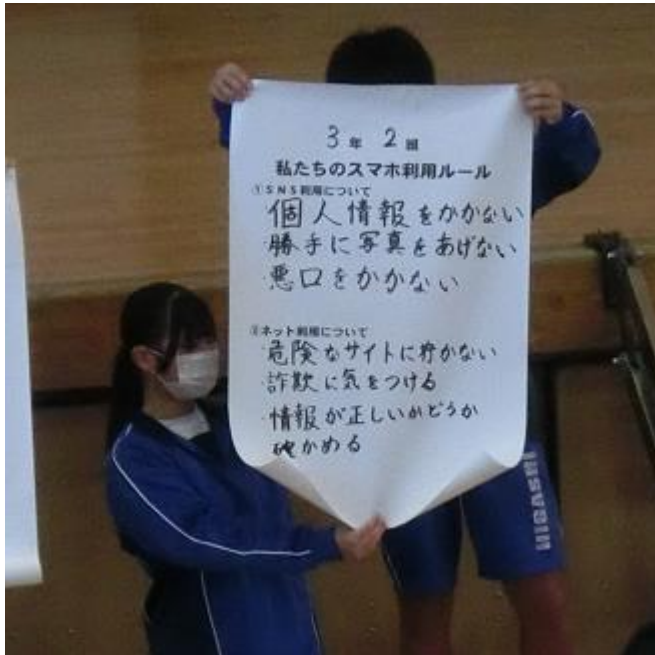 3年 2組
私たちのスマホ利用ルール
①SNS利用について
・個人情報をかかない
・勝手に写真をあげない
・悪口をかかない
②ネット利用について
・危険なサイトに行かない
・詐欺に気をつける
・情報が正しいかどうか
確かめる